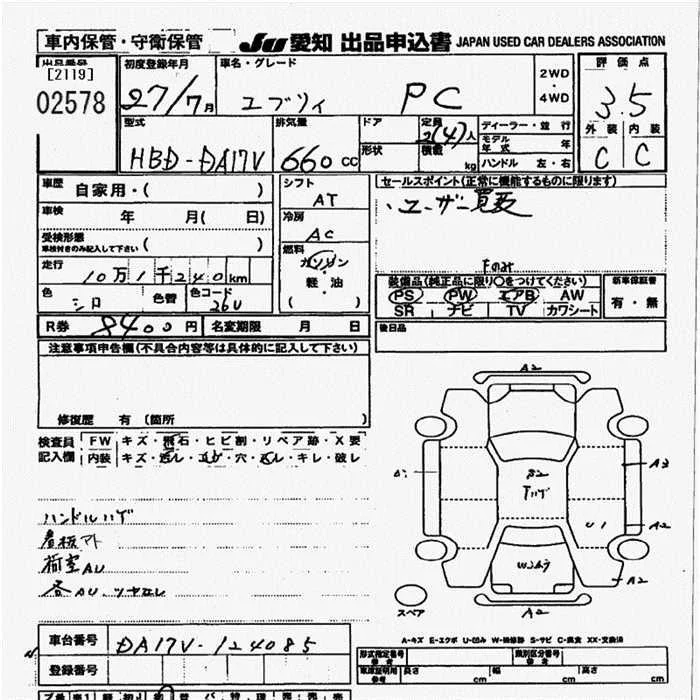 車内保管・守衛保管
JU 愛知 出品申込書 JAPAN USED CAR DEALERS ASSOCIATION
出品番号
[2119]
02578
初度登録年月
27/7月
車名・グレード
エブリィ PC
2WD
・
4WD
評価点
3.5
外装 内装
C C
型式
HBD-DA17V
排気量
660 cc
ドア
形状
定員
2(4)人
積載
kg
ディーラー・並行
モデル年式 年
ハンドル 左・右
車歴 自家用・( )
車検 年 月( 日)
受検形態
車検付きのみ記入して下さい ( )
走行
10万1千240km
色 シロ 色替 色コード 26U
シフト
AT
冷房
AC
燃料
ガソリン
・
軽・油
( )
セールスポイント(正常に機能するものに限ります)
・ユーザー買取
Fのみ
装備品(純正品に限り○をつけてください)
PS PW エアB AW
SR ナビ TV カワシート
新車保証書
有・無
後日品
R券 8400円 名変期限 月 日
注意事項申告欄(不具合内容等は具体的に記入して下さい)
修復歴 有 〔箇所 〕
検査員 FW キズ・飛石・ヒビ割・リペア跡・X要
記入欄 内装 キズ・汚レ・コゲ・穴・スレ・キレ・破レ
ハンドルハゲ
看板アト
荷室AU
各AU、ツヤなし
A2
A3
B2
Tハゲ
U1
A2
A2
A2
スペア
A-キズ E-エクボ U-凹み W-補修跡 S-サビ C-腐食 XX-交換済
車台番号 DA17V-124085
登録番号
形式指定番号 類別区分番号
参考 参考
車庫証明用 長さ 幅 高さ
参考 cm cm cm